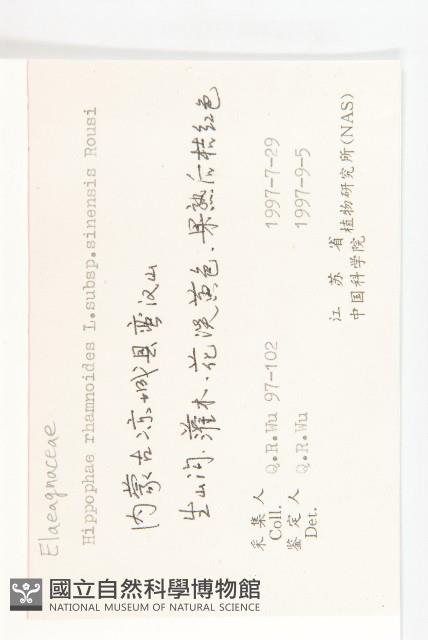 Elaeagnaceae
Hippophae rhamnoides L.subsp.sinensis Rousi
内蒙古凉城县蛮汉山
生山沟.灌木.花淡黄色.果熟后桔红色
采集人 Coll. Q.R.Wu 97-102 1997-7-29
鉴定人 Det. Q.R.Wu 1997-9-5
江苏省
中国科学院 植物研究所(NAS)
國立自然科學博物館
NATIONAL MUSEUM OF NATURAL SCIENCE